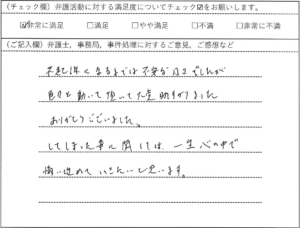 (チェック欄)弁護活動に対する満足度についてチェック☑をお願いします。
☑非常に満足 □満足 □やや満足 □不満 □非常に不満
(ご記入欄)弁護士、事務局、事件処理に対するご意見、ご感想など
不起訴になるまでは不安な日々でしたが
色々と動いて頂いて大変助かりました
ありがとうございました。
してしまった事に関しては一生心の中で
悔い改めていきたいと思います。